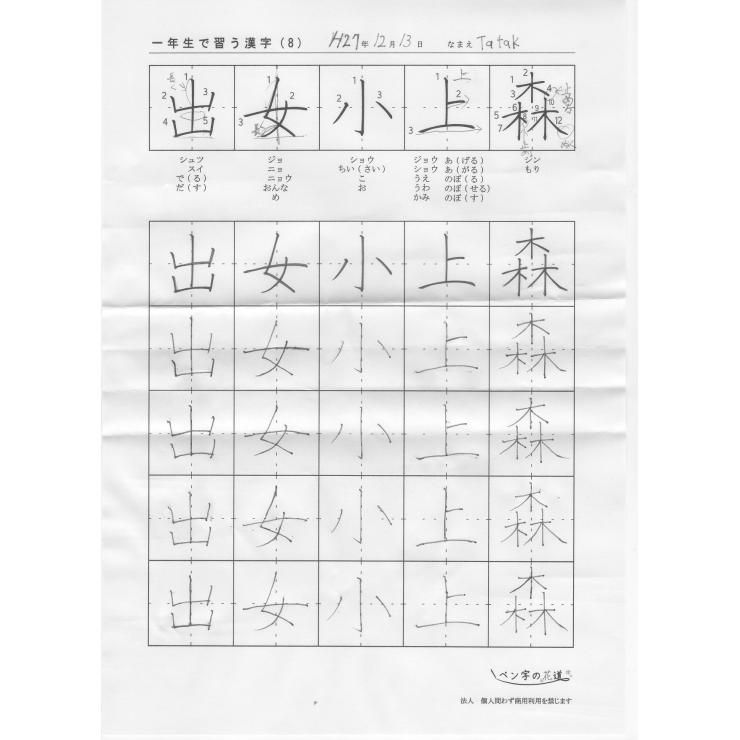 一年生で習う漢字(8) H27年12月13日 なまえ Tatak
出 女 小 上 森
シュツ ジョ ショウ ジョウ あ(げる) シン
スイ ニョ ちい(さい) ショウ あ(がる) もり
で(る) ニョウ こ うえ のぼ(る)
だ(す) おんな お うわ のぼ(せる)
め かみ のぼ(す)
出 女 小 上 森
出 女 小 上 森
出 女 小 上 森
出 女 小 上 森
出 女 小 上 森
ペン字の花道
法人 個人問わず商用利用を禁じます